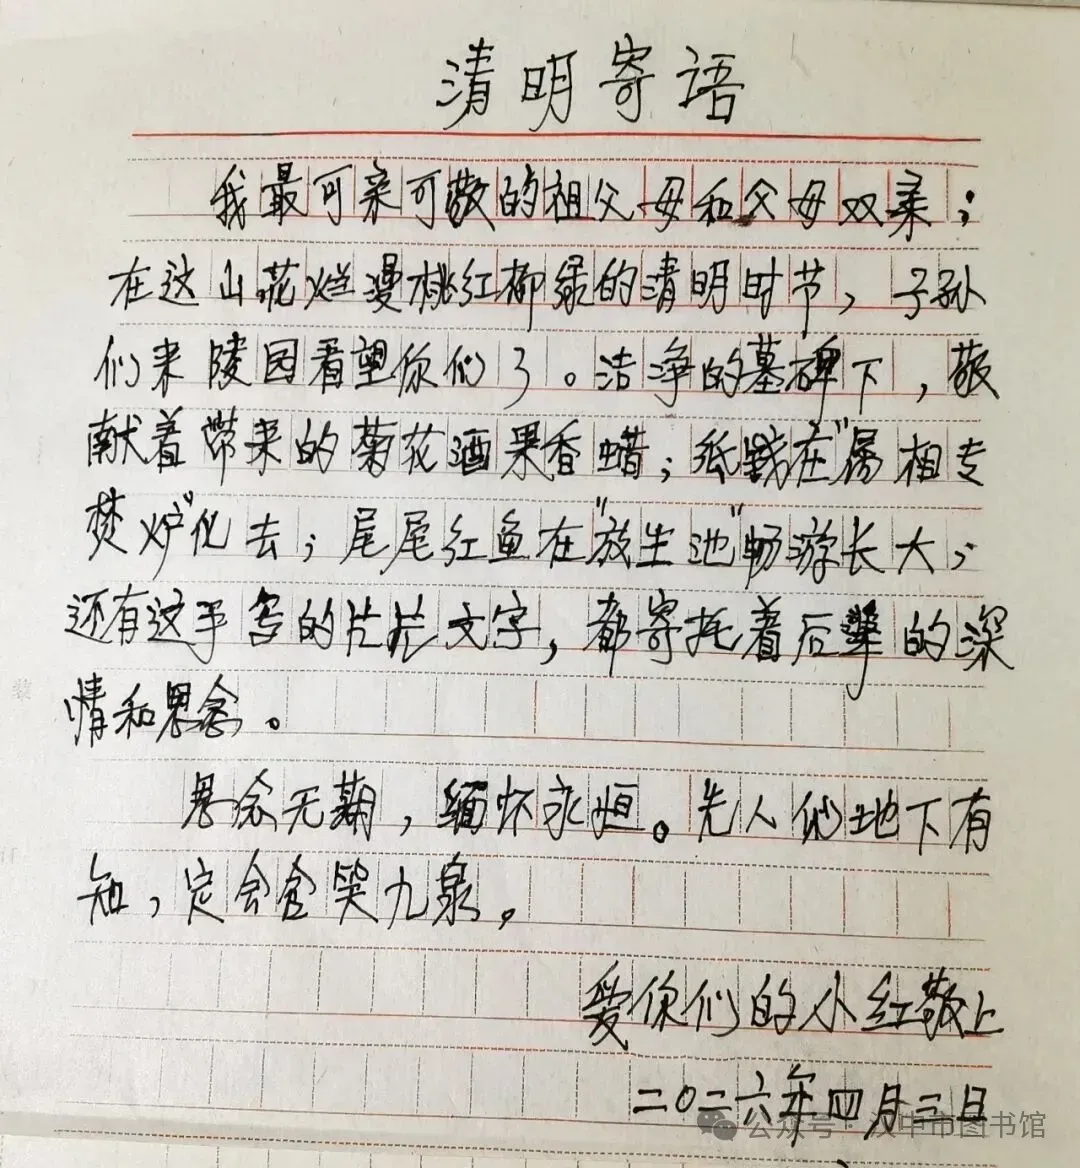 清明寄语
我最可亲可敬的祖父母和父母双亲；
在这山花烂漫桃红柳绿的清明时节，子孙
们来陵园看望你们了。洁净的墓碑下，敬
献着带来的菊花酒果香蜡；纸钱在"属相专
焚炉"化去；尾尾红鱼在"放生池"畅游长大；
还有这手写的片片文字，都寄托着后辈的深
情和思念。
思念无期，缅怀永恒。先人们地下有
知，定会含笑九泉。
爱你们的小红敬上
二〇二六年四月三日
公众号·汉中市图书馆